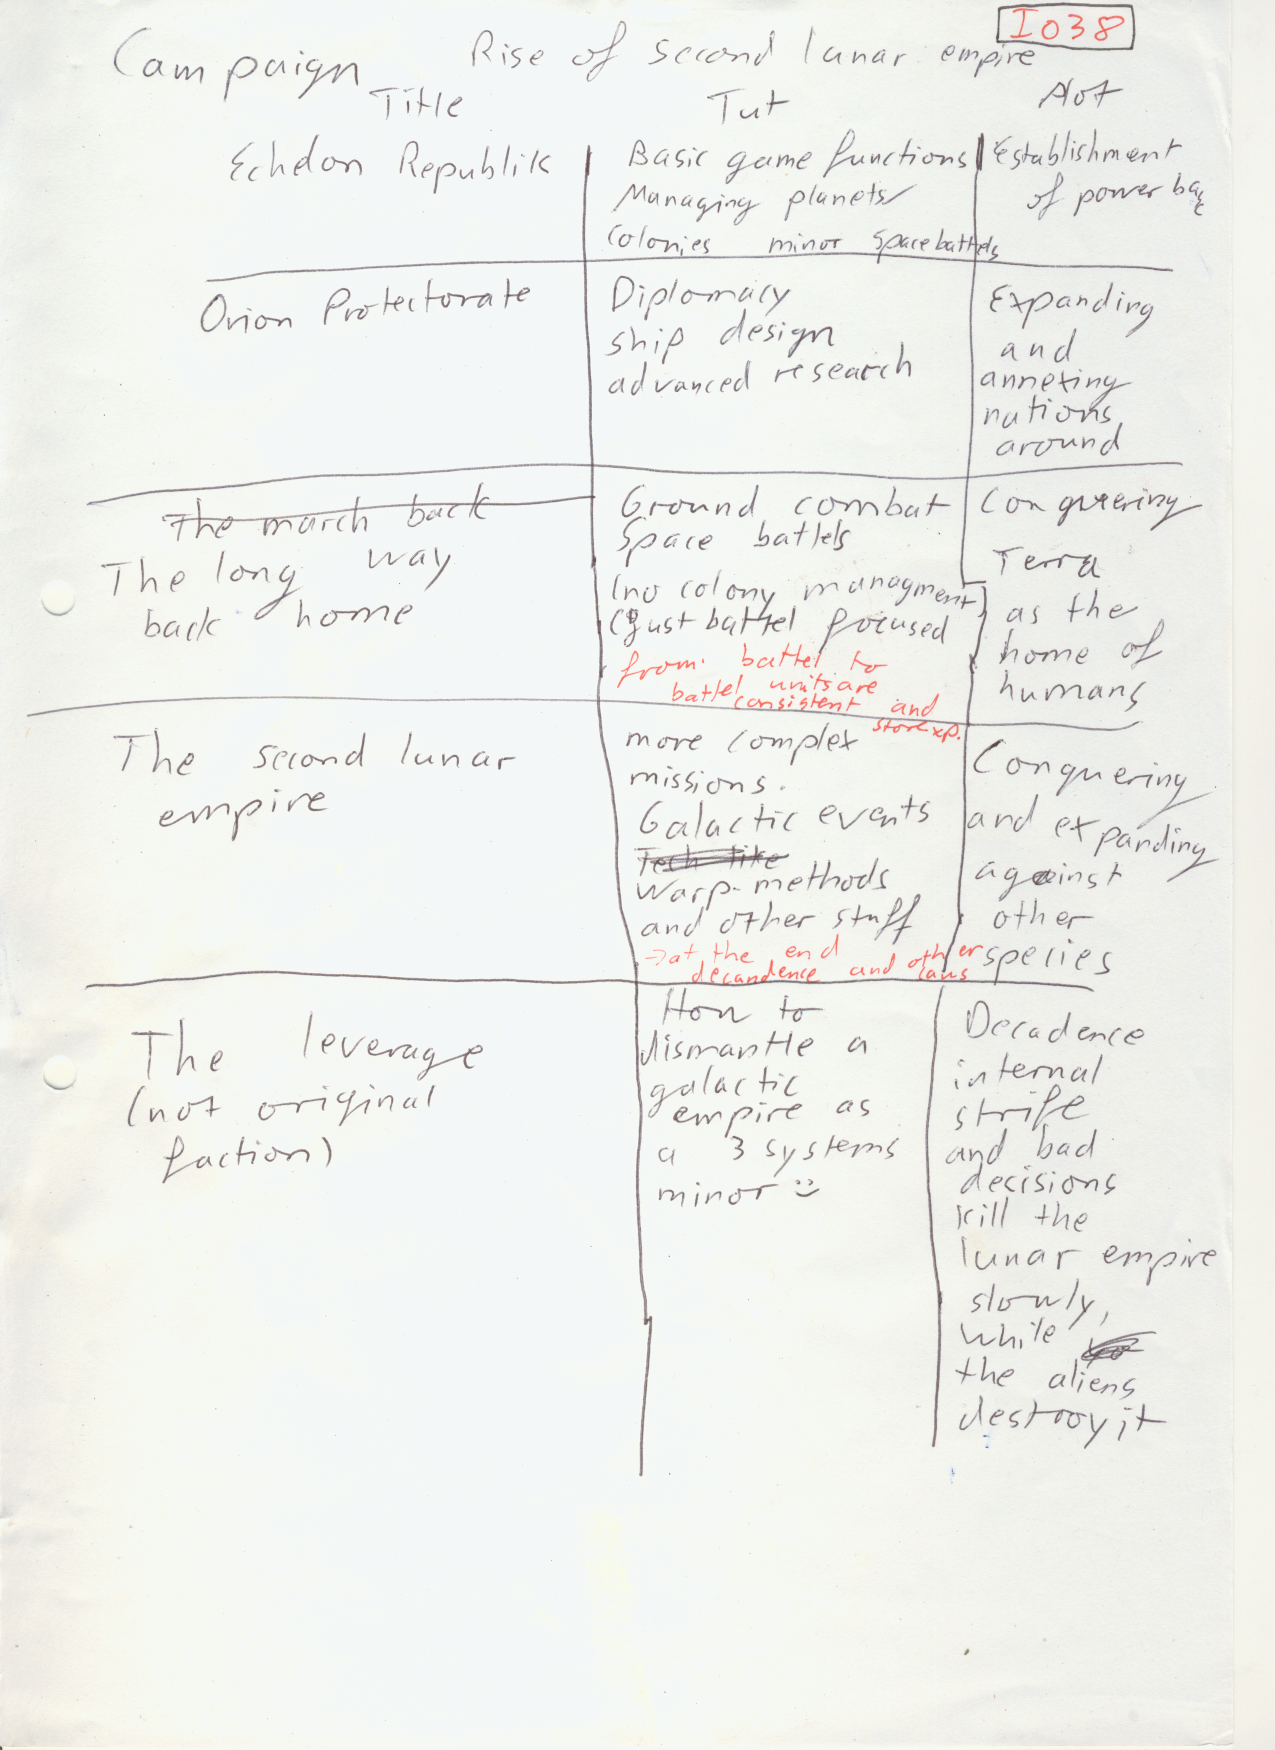 I038
Campaign Rise of second lunar empire
Title Tut
Echelon Republik
Basic game functions
Managing planets
Colonies minor Spacebattels
Establishment
of power base
Orion Protectorate
Diplomacy
ship design
advanced research
Expanding
and
annexing
nations
around
The march back
The long way
back home
Ground combat
Space battels
(no colony managment)
(just battel focused
from battel to
battel units are
consistent and
store xp.
Conquering
Terra
as the
home of
humans
The second lunar
empire
more complex
missions.
Galactic events
Tech like
Warp-methods
and other stuff
→ at the end
decandence and other
Conquering
and expanding
against
other
species
The leverage
(not original
faction)
How to
dismantle a
galactic
empire as
a 3 systems
minor :)
Decadence
internal
strife
and bad
decisions
kill the
lunar empire
slowly,
while
the aliens
destroy it